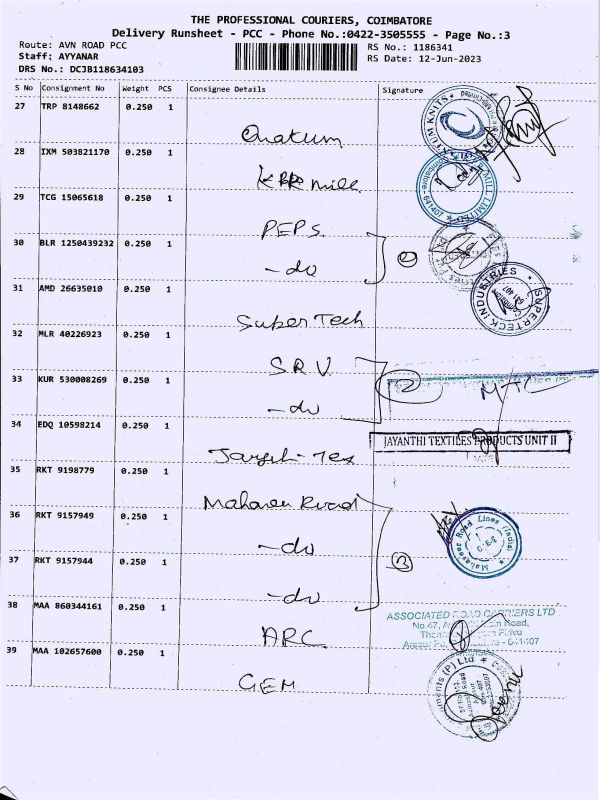 THE PROFESSIONAL COURIERS, COIMBATORE
Delivery Runsheet - PCC - Phone No.:0422-3505555 - Page No.:3
Route: AVN ROAD PCC
RS No.: 1186341
Staff: AYYANAR
RS Date: 12-Jun-2023
DRS No.: DCJB118634103
S No Consignment No Weight PCS Consignee Details Signature
27 TRP 8148662 0.250 1
KNITS
28 IXM 503821170 0.250 1
KPR mill
MILL LIMITED
641407
29 TCG 15065618 0.250 1
PEPS
30 BLR 1250439232 0.250 1
-do
2
31 AMD 26635010 0.250 1
Super Tech
SUPERTECK INDUSTRIES
641 407
32 MLR 40226923 0.250 1
S.R.V
33 KUR 530008269 0.250 1
-do
2
34 EDQ 10598214 0.250 1
JAYANTHI TEXTILES PRODUCTS UNIT II
35 RKT 9198779 0.250 1
36 RKT 9157949 0.250 1
-do
Mahaveer Road Lines (India)
37 RKT 9157944 0.250 1
-do
3
38 MAA 860344161 0.250 1
ARC
ASSOCIATED ROAD CARRIERS LTD
No.47, Road,
641407
39 MAA 102657600 0.250 1
GEM
(P) Ltd